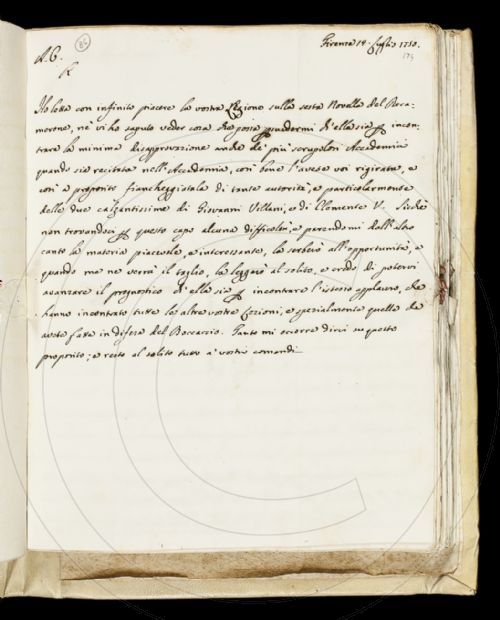 86
Firenze 14. Luglio 1750.
174
A. C.
R.
Ho letta con infinito piacere la vostra Lezione sulla sesta Novella del Boca-
morone, nè vi ho saputo veder cosa che possa guardarmi ch'ella sia per incon-
trare la minima disapprovazione anche de' più scrupolosi Accademici
quando sia recitata nell'Accademia, così bene l'avete voi rigirata, e
così a proposito fiancheggiatala di tante autorità, e particolarmente
delle due calzantissime di Giovanni Villani, e di Clemente V. Sicchè
non trovandoci per questo capo alcuna difficoltà, e parendomi dall'altro
canto la materia piacevole, e interessante, la serberò all'opportunità, e
quando me ne verrà il taglio, la leggerò al solito, e credo di potervi
avanzare il prognostico ch'ella sia per incontrare l'istesso applauso, che
hanno incontrato tutte le altre vostre Lezioni, e spezialmente quelle che
avete fatte in difesa del Boccaccio. Tanto mi occorre dirvi su questo
proposito; e resto al solito tutto a' vostri comandi